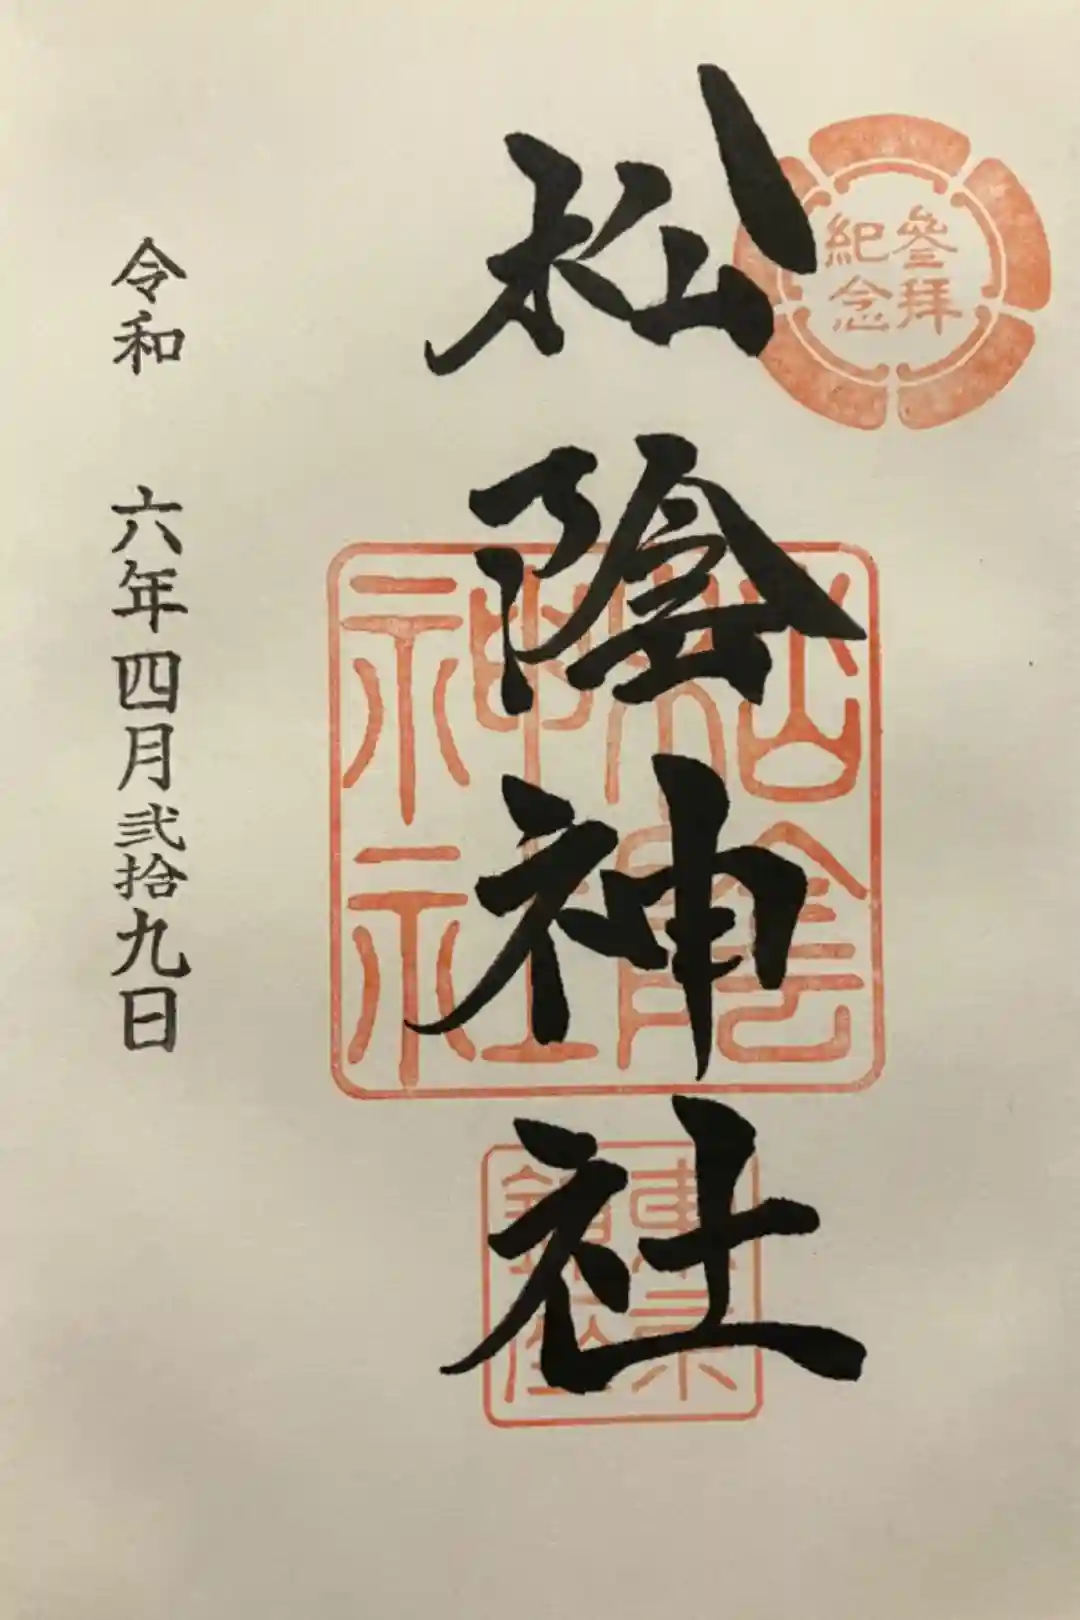 參拜
紀念
松陰神社
松陰
神社
東京
鎮座
令和 六年四月弐拾九日